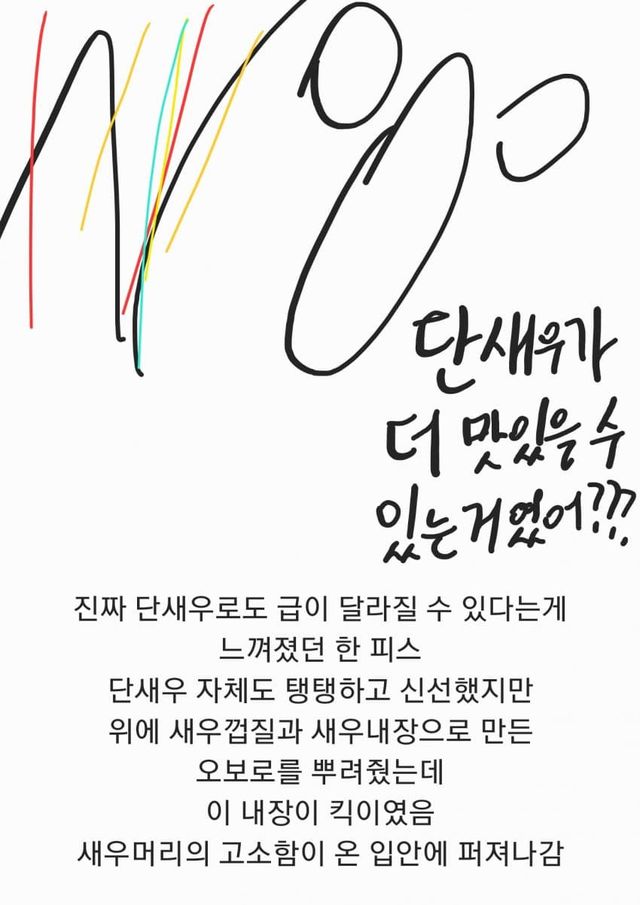 단새우가
더 맛있을 수
있는거였어???
진짜 단새우로도 급이 달라질 수 있다는게
느껴졌던 한 피스
단새우 자체도 탱탱하고 신선했지만
위에 새우껍질과 새우내장으로 만든
오보로를 뿌려줬는데
이 내장이 킥이였음
새우머리의 고소함이 온 입안에 퍼져나감